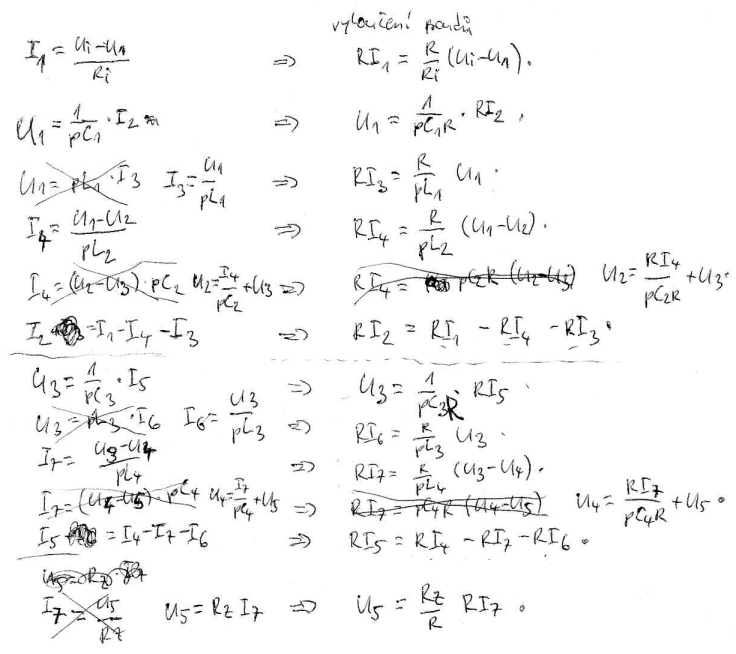 vyloučení proudů
I₁ = (Ui-U₁)/Ri ⇒ RI₁ = R/Ri (Ui-U₁).
U₁ = 1/pC₁ · I₂ ⇒ U₁ = 1/pC₁R · RI₂.
U₁ = pL₁ · I₃ I₃ = U₁/pL₁ ⇒ RI₃ = R/pL₁ U₁.
I₄ = (U₁-U₂)/pL₂ ⇒ RI₄ = R/pL₂ (U₁-U₂).
I₄ = (U₂-U₃) · pC₂ U₂ = I₄/pC₂ + U₃ ⇒ RI₄ = pC₂R (U₂-U₃) U₂ = RI₄/pC₂R + U₃.
I₂ = I₁-I₄-I₃ ⇒ RI₂ = RI₁ - RI₄ - RI₃.
U₃ = 1/pC₃ · I₅ ⇒ U₃ = 1/pC₃R · RI₅
U₃ = pL₃ · I₆ I₆ = U₃/pL₃ ⇒ RI₆ = R/pL₃ U₃.
I₇ = (U₃-U₄)/pL₄ ⇒ RI₇ = R/pL₄ (U₃-U₄).
I₇ = (U₄-U₅) · pC₄ U₄ = I₇/pC₄ + U₅ ⇒ RI₇ = pC₄R (U₄-U₅) U₄ = RI₇/pC₄R + U₅.
I₅ = I₄-I₇-I₆ ⇒ RI₅ = RI₄ - RI₇ - RI₆.
U₅ = Rz · I₇
I₇ = U₅/Rz U₅ = Rz I₇ ⇒ U₅ = Rz/R RI₇.